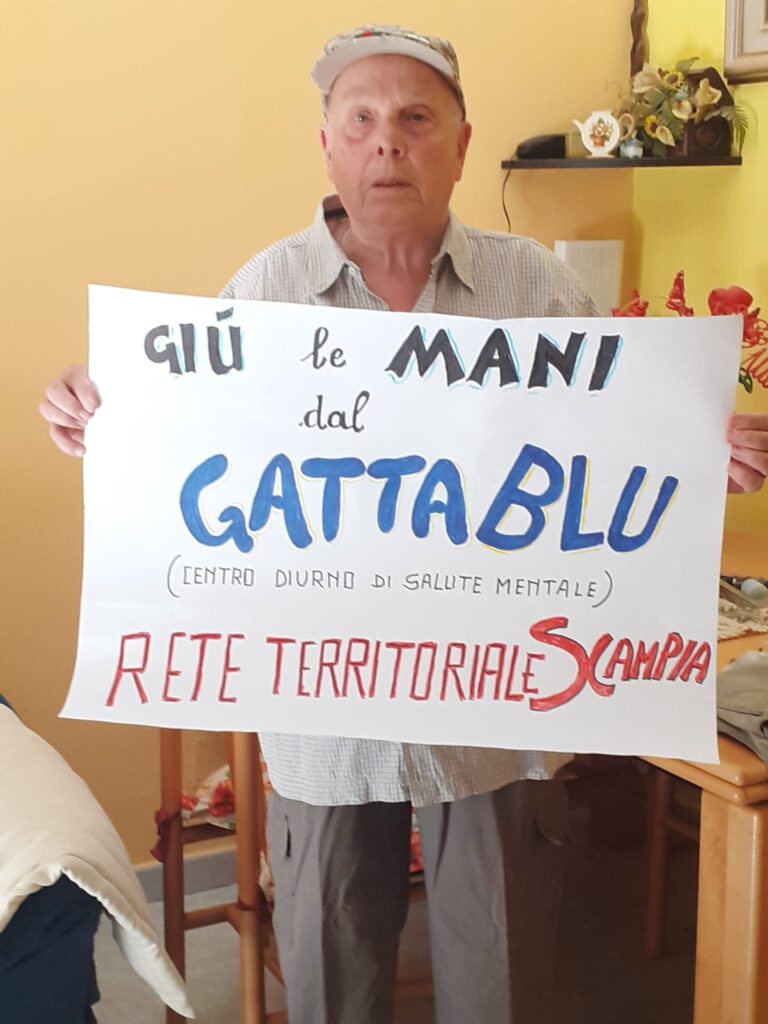 GIÚ le MANI
dal
GATTABLU
(CENTRO DIURNO DI SALUTE MENTALE)
RETE TERRITORIALE SCAMPIA